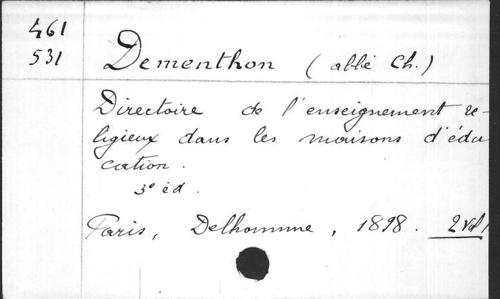 461
531
Dementhon (abbé Ch.)
Directoire de l'enseignement re-
ligieux dans les maisons d'édu
cation.
3e éd.
Paris, Delhomme, 1898. 2 vol